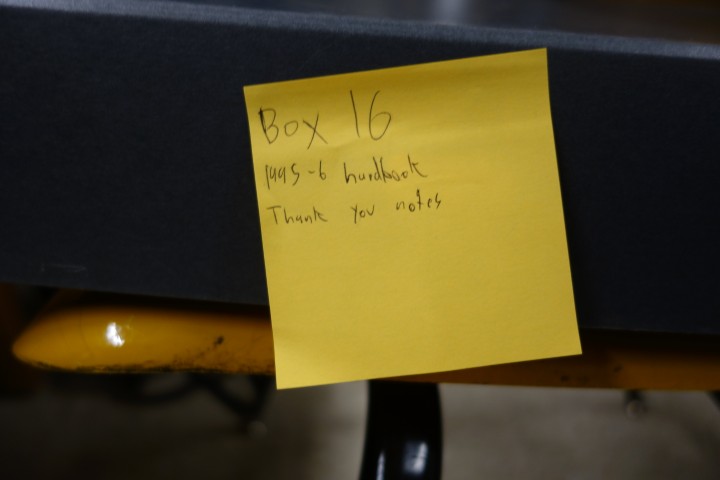 Box 16
1995-6 handbook
Thank you notes